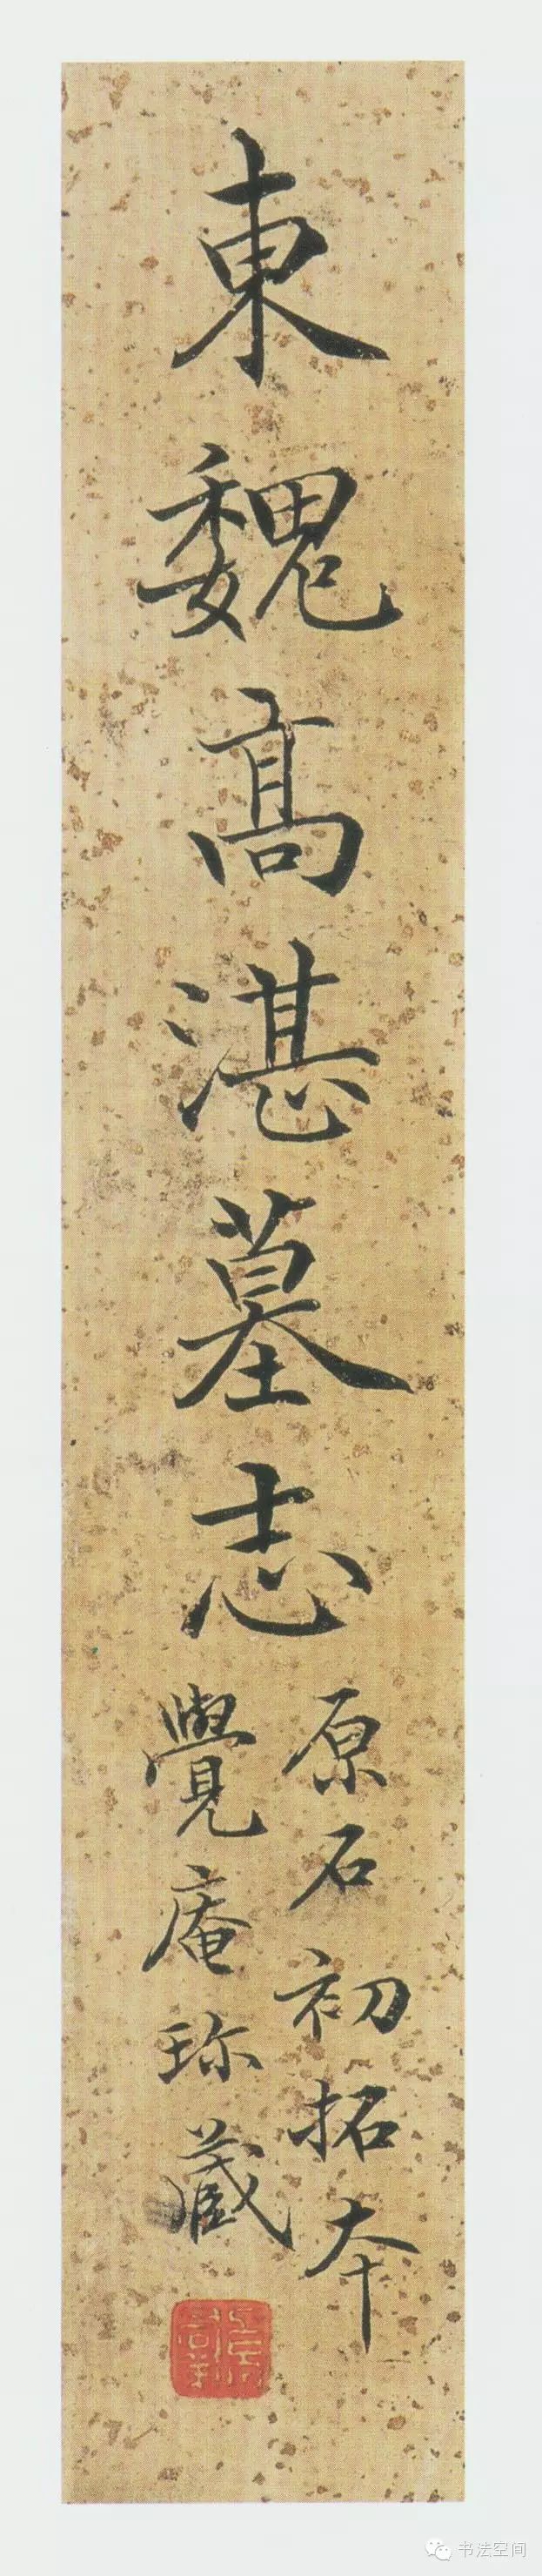 東魏高湛墓志
原石初拓夲
覺庵珎藏
书法空间